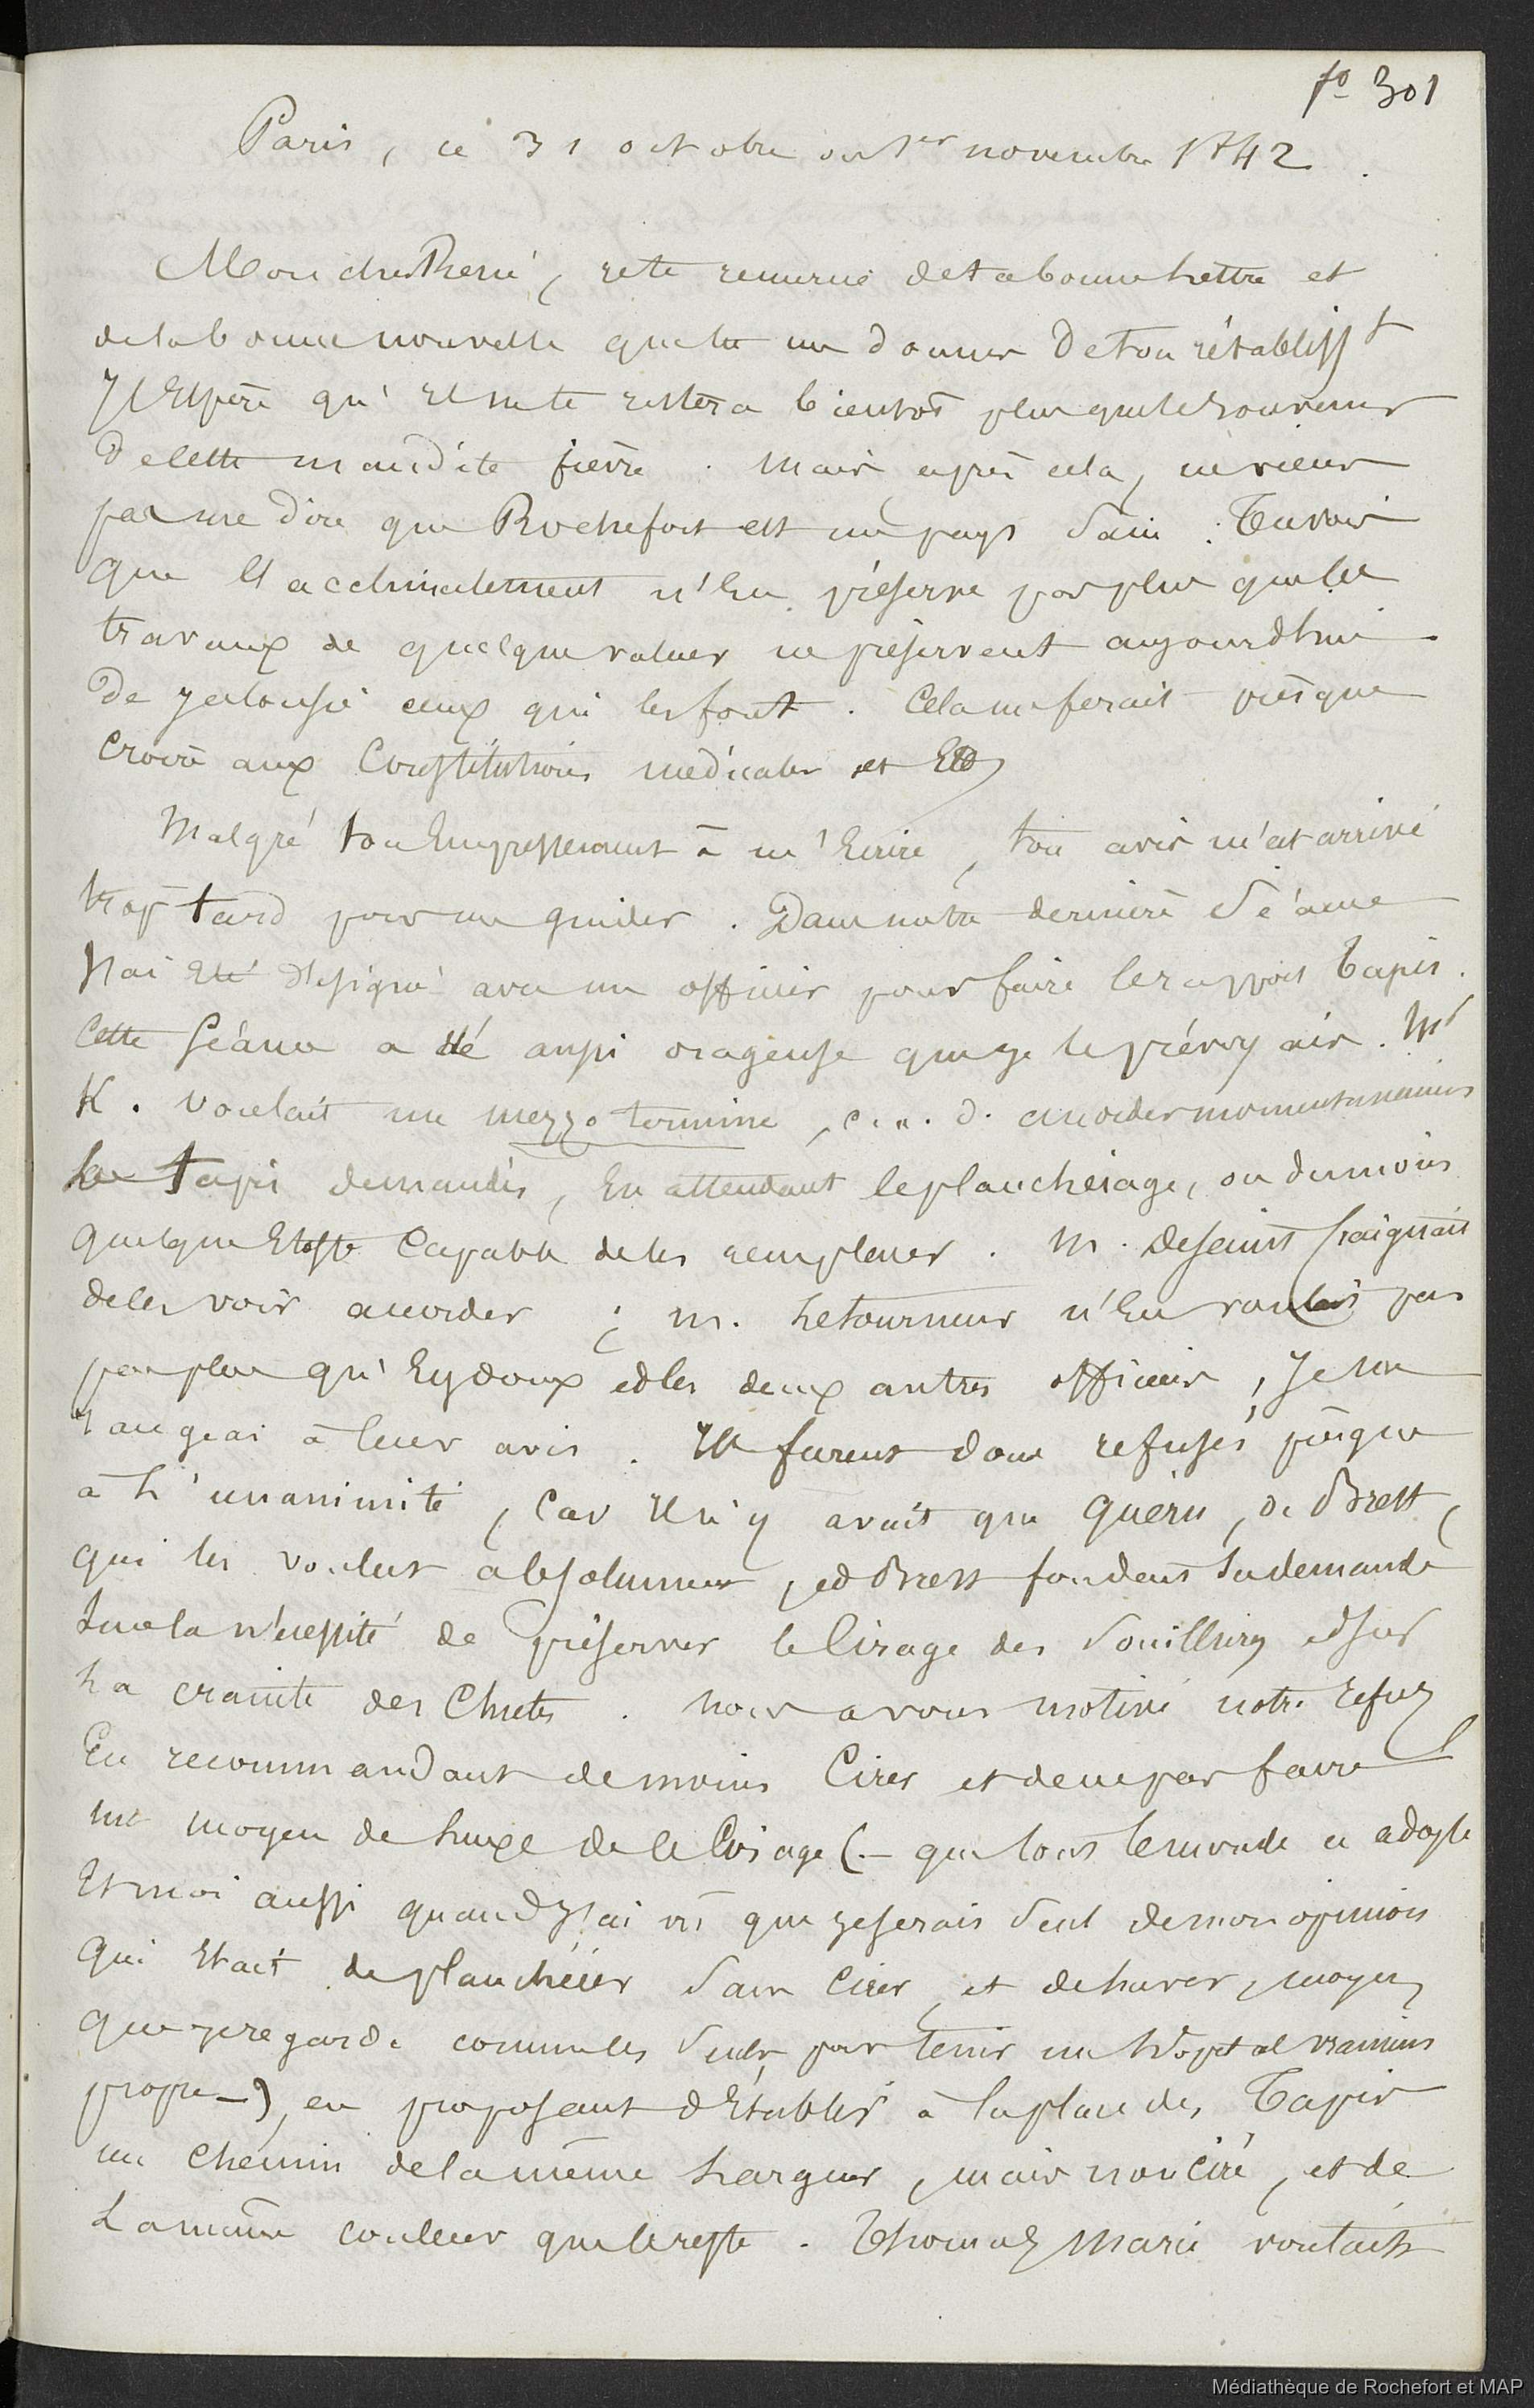 fo 301
Paris, ce 31 octobre ou 1er novembre 1842.
Mon cher René, je te remercie de ta bonne lettre et
de la bonne nouvelle que tu me donnes de ton rétablisst
J'espère qu'il ne te restera bientôt plus que le souvenir
de cette maudite fièvre. Mais après cela, ne viens
pas me dire que Rochefort est un pays sain. Tu vois
que l'acclimatement n'en préserve pas plus que les
travaux de quelque valeur ne préservent aujourd'hui
de jalousie ceux qui les font. Cela me ferait presque
croire aux Constitutions médicales et
Malgré ton empressement à m'écrire, ton avis m'est arrivé
trop tard pour me guider. Dans notre dernière séance
j'ai été désigné avec un officier pour faire le rapport Tapis.
Cette séance a été aussi orageuse que je le prévoyais. Mr
K. voulait un mezzo termine, c. a. d. accorder momentanément
les tapis demandés, en attendant le planchéiage, ou du moins
quelque étoffe capable de les remplacer. M. Desaint craignait
de les voir accorder ; M. Letourneur n'en voulait pas
pas plus qu'Eydoux et les deux autres officiers, je me
rangeai à leur avis. Ils furent donc refusés presque
à l'unanimité, car il n'y avait que Guérin, de Brest,
qui les voulut absolument, et Brest fondant sa demande
sur la nécessité de préserver le cirage des souillures et sur
la crainte des chutes. Nous avons motivé notre refus
en recommandant de moins cirer et de ne pas faire
un moyen de luxe de le cirage (- que tout le monde a adopté
et moi aussi quand j'ai vu que je serais seul de mon opinion
qui était de planchéier sans cirer, et de laver, moyen
que je regarde comme les seuls pour tenir un hôpital vraiment
propre -), en proposant d'établir à la place des Tapis
un chemin de la même largeur, mais non ciré, et de
la même couleur que le reste. Thomas Marie voulait
Médiathèque de Rochefort et MAP